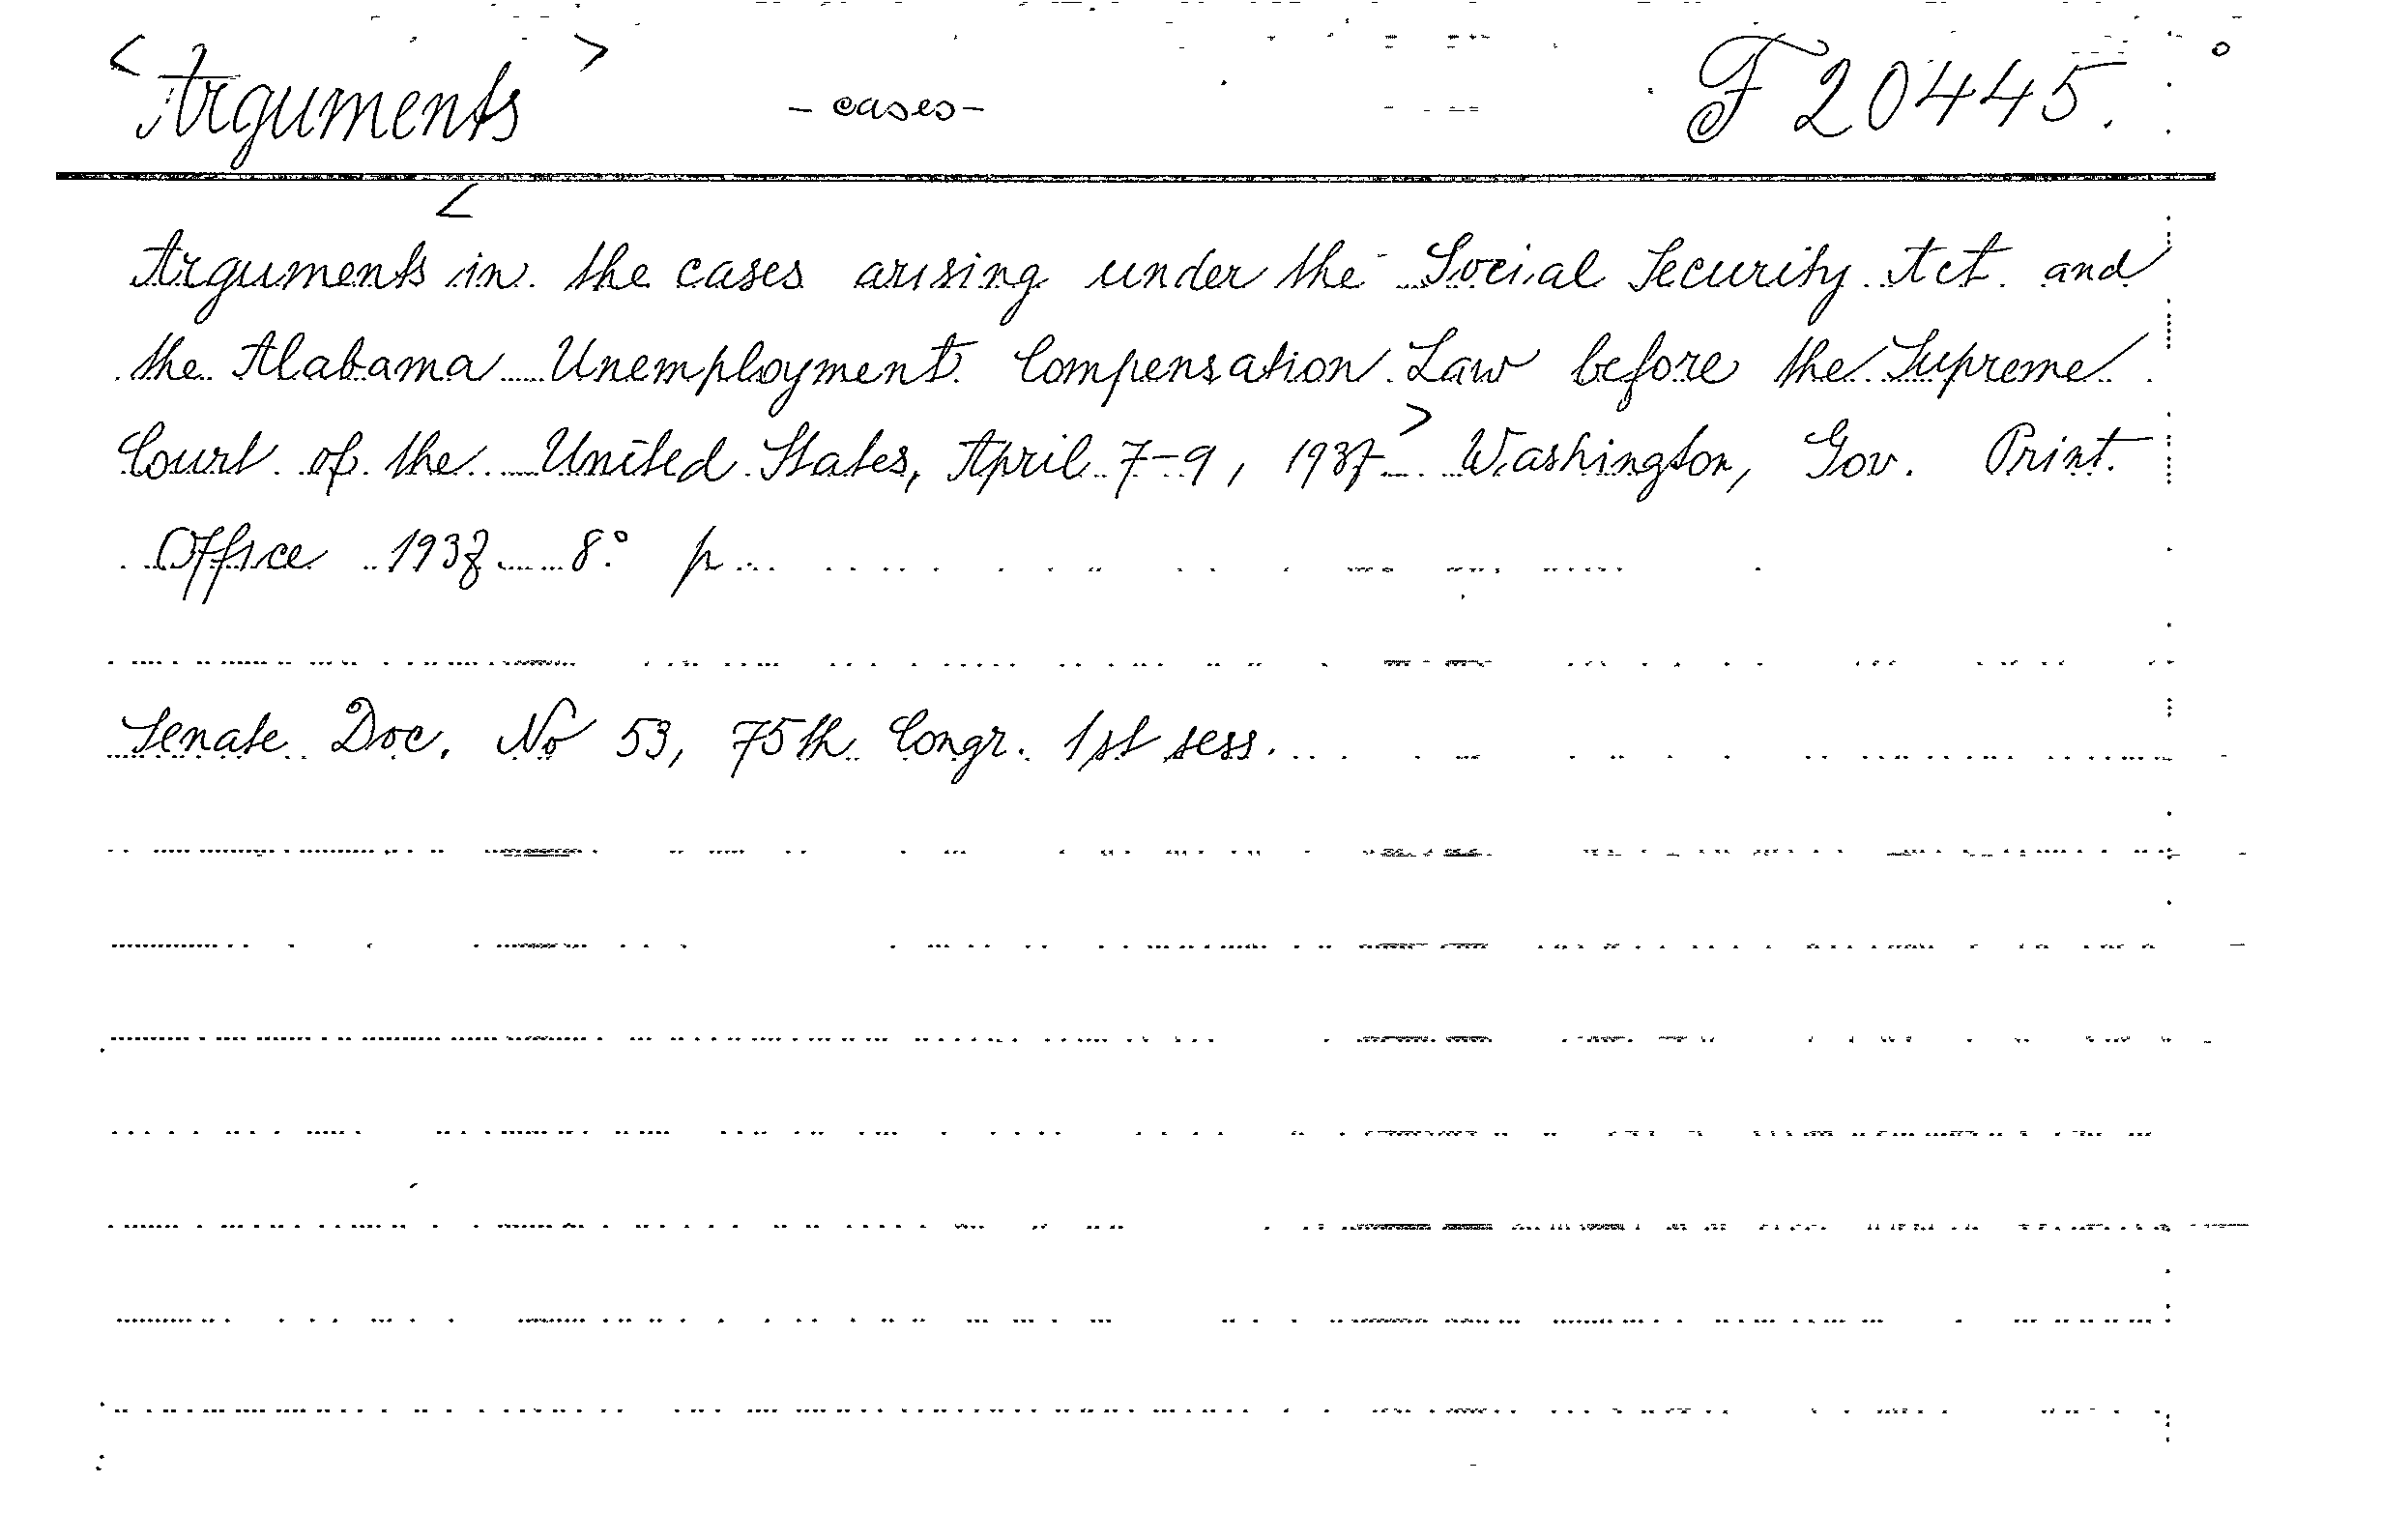 <Arguments> - cases - F 20445.
<
Arguments in the cases arising under the Social Security Act and
the Alabama Unemployment Compensation Law before the Supreme
Court of the United States, April 7-9, 1937> Washington, Gov. Print.
Office 1937 8° p
Senate Doc. No 53, 75th Congr. 1st sess.